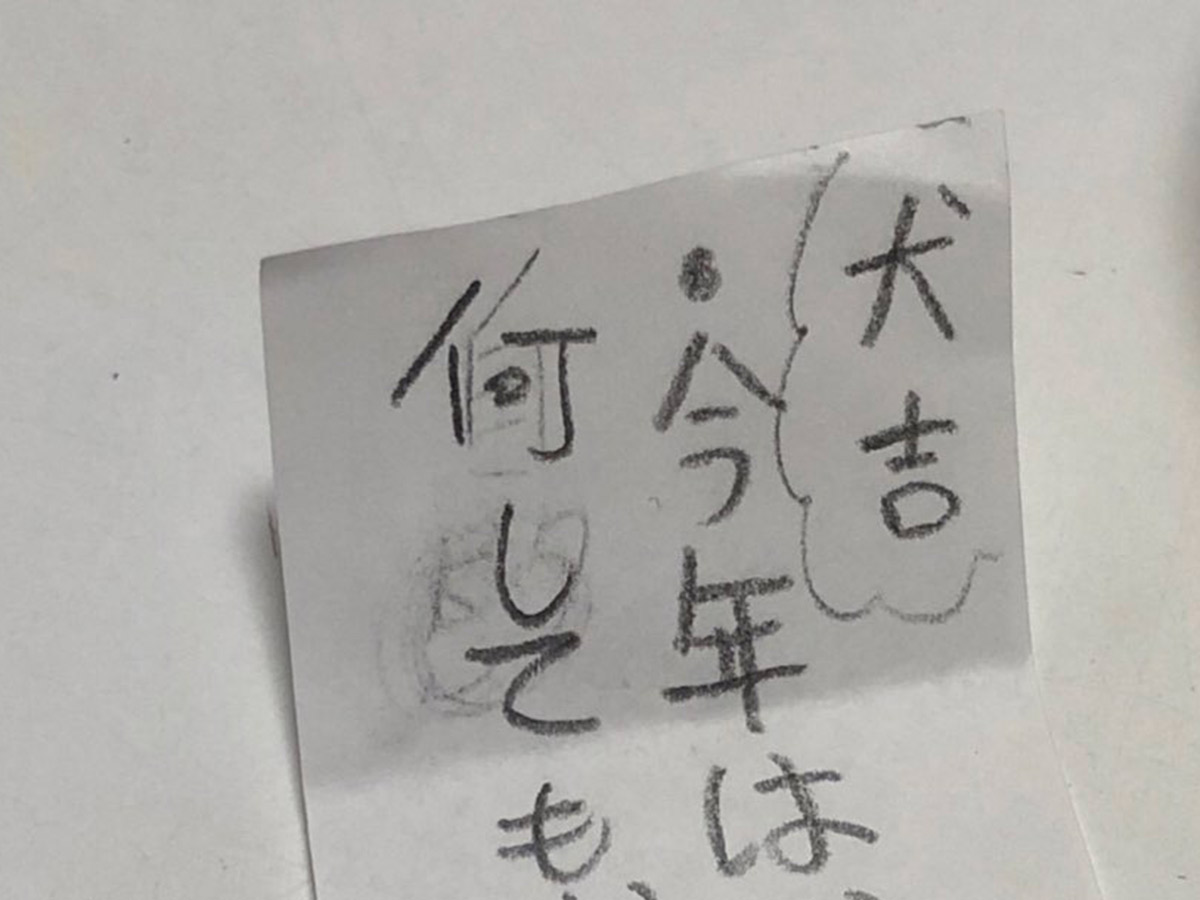 犬吉
・今年は
何しても